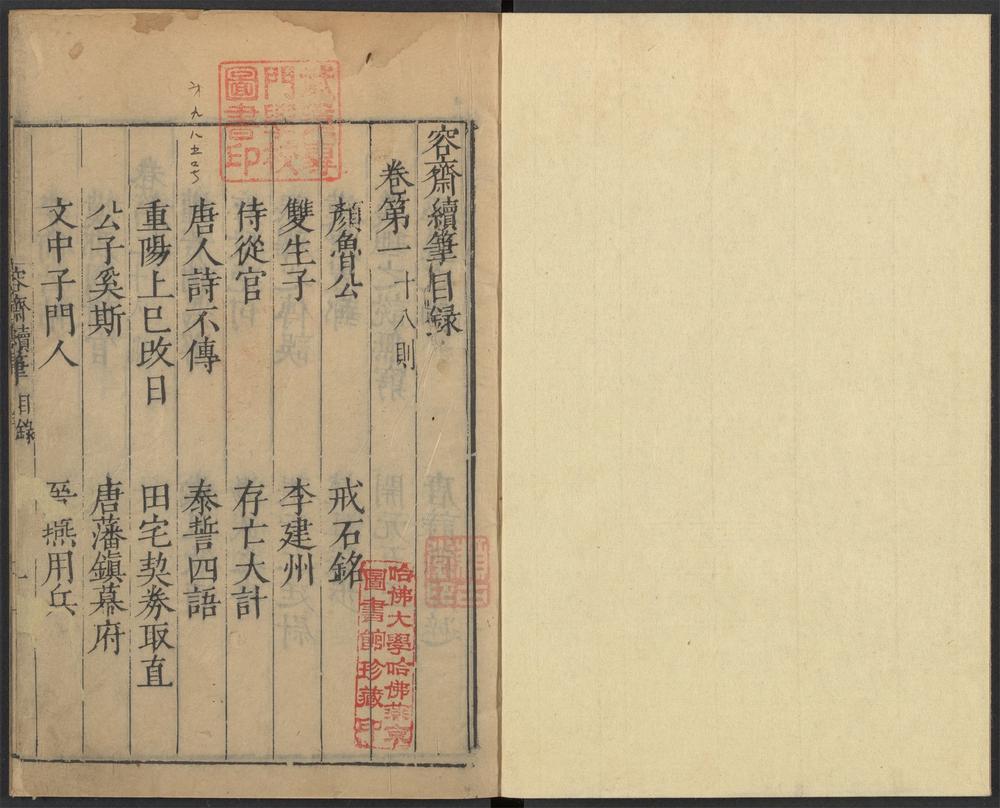 容齋續筆目録
卷第一 十八則
顏魯公 戒石銘
雙生子 李建州
侍從官 存亡大計
唐人詩不傳 泰誓四語
重陽上巳改日 田宅契券取直
公子奚斯 唐藩鎮幕府
文中子門人 燕用兵
容齋續筆 目錄 一
圖書印
哈佛大學哈佛燕京
圖書館珍藏印